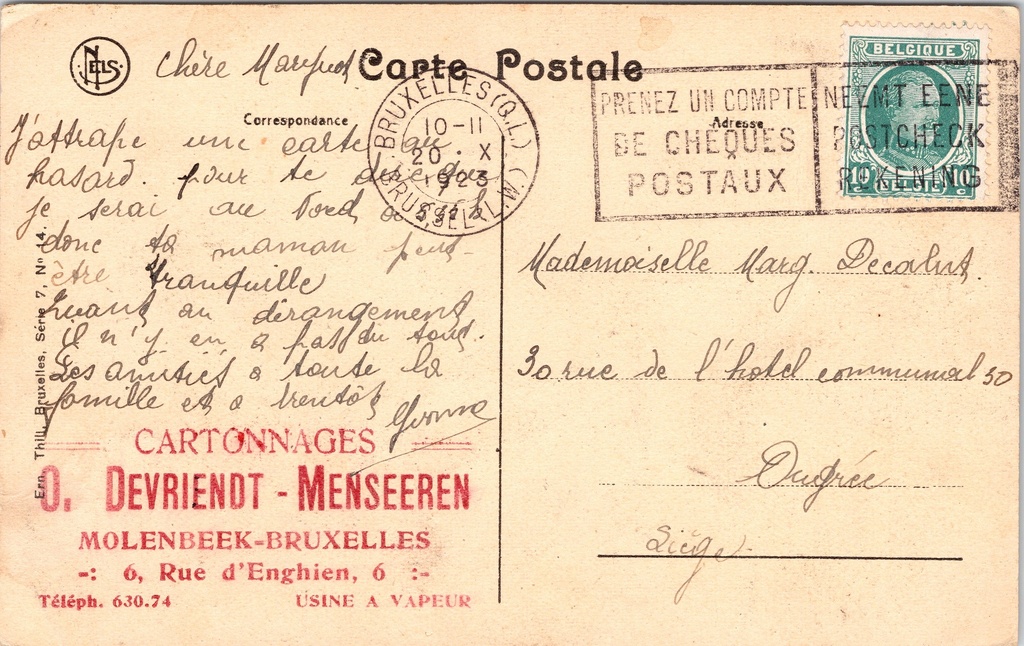 NELS
Carte Postale
Correspondance
Adresse
Chère
J'attrape une carte au
hasard. pour te dire que
je serai au
donc ta maman peut-
être tranquille
Quant au dérangement
il n'y en a pas du tout.
Les amitiés a toute la
famille et a bientôt
Yvonne
BRUXELLES (Q.L.) (M.V.)
10-11
20 · X
1923
BRUSSEL
PRENEZ UN COMPTE
DE CHÈQUES
POSTAUX
NEEMT EENE
POSTCHECK
REKENING
BELGIQUE
10 BELGIË 10
Mademoiselle Marg.
30 rue de l'hotel communal 30
Ougrée
Siège
Ern. Thill, Bruxelles, Série 7, No 14.
CARTONNAGES
O. DEVRIENDT - MENSEEREN
MOLENBEEK-BRUXELLES
-: 6, Rue d'Enghien, 6 :-
Téléph. 630.74 USINE A VAPEUR